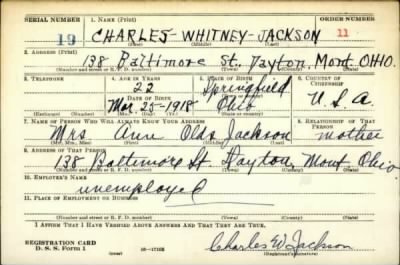 SERIAL NUMBER 1. NAME (Print) ORDER NUMBER
19 CHARLES-WHITNEY-JACKSON 11
(First) (Middle) (Last)
2. ADDRESS (Print)
138 Baltimore St. Dayton, Mont OHIO.
(Number and street or R. F. D. number) (Town) (County) (State)
3. TELEPHONE 4. AGE IN YEARS 5. PLACE OF BIRTH 6. COUNTRY OF CITIZENSHIP
22 Springfield
DATE OF BIRTH (Town or county)
Mar. 25-1918 Ohio U.S.A.
(Exchange) (No.) (Mo.) (Day) (Yr.) (State or country)
7. NAME OF PERSON WHO WILL ALWAYS KNOW YOUR ADDRESS 8. RELATIONSHIP OF THAT PERSON
Mrs Ann Olds Jackson mother
(Mr., Mrs., Miss) (First) (Middle) (Last)
9. ADDRESS OF THAT PERSON
138 Baltimore St Dayton, Mont Ohio
(Number and street or R. F. D. number) (Town) (County) (State)
10. EMPLOYER'S NAME
unemployed
11. PLACE OF EMPLOYMENT OR BUSINESS
(Number and street or R. F. D. number) (Town) (County) (State)
I AFFIRM THAT I HAVE VERIFIED ABOVE ANSWERS AND THAT THEY ARE TRUE.
REGISTRATION CARD
D. S. S. Form 1 Charles W Jackson
(Registrant's signature)